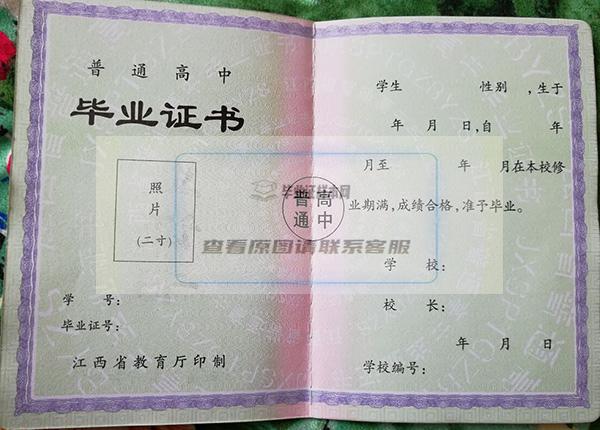 普通高中
毕业证书
照
片
(二寸)
学 号:
毕业证号:
江西省教育厅印制
学生 性别 ,生于
年 月 日,自 年
月至 年 月在本校修
业期满,成绩合格,准予毕业。
学 校:
校 长:
年 月 日
学校编号:
普高
通中
毕业证样本网
查看原图请联系客服